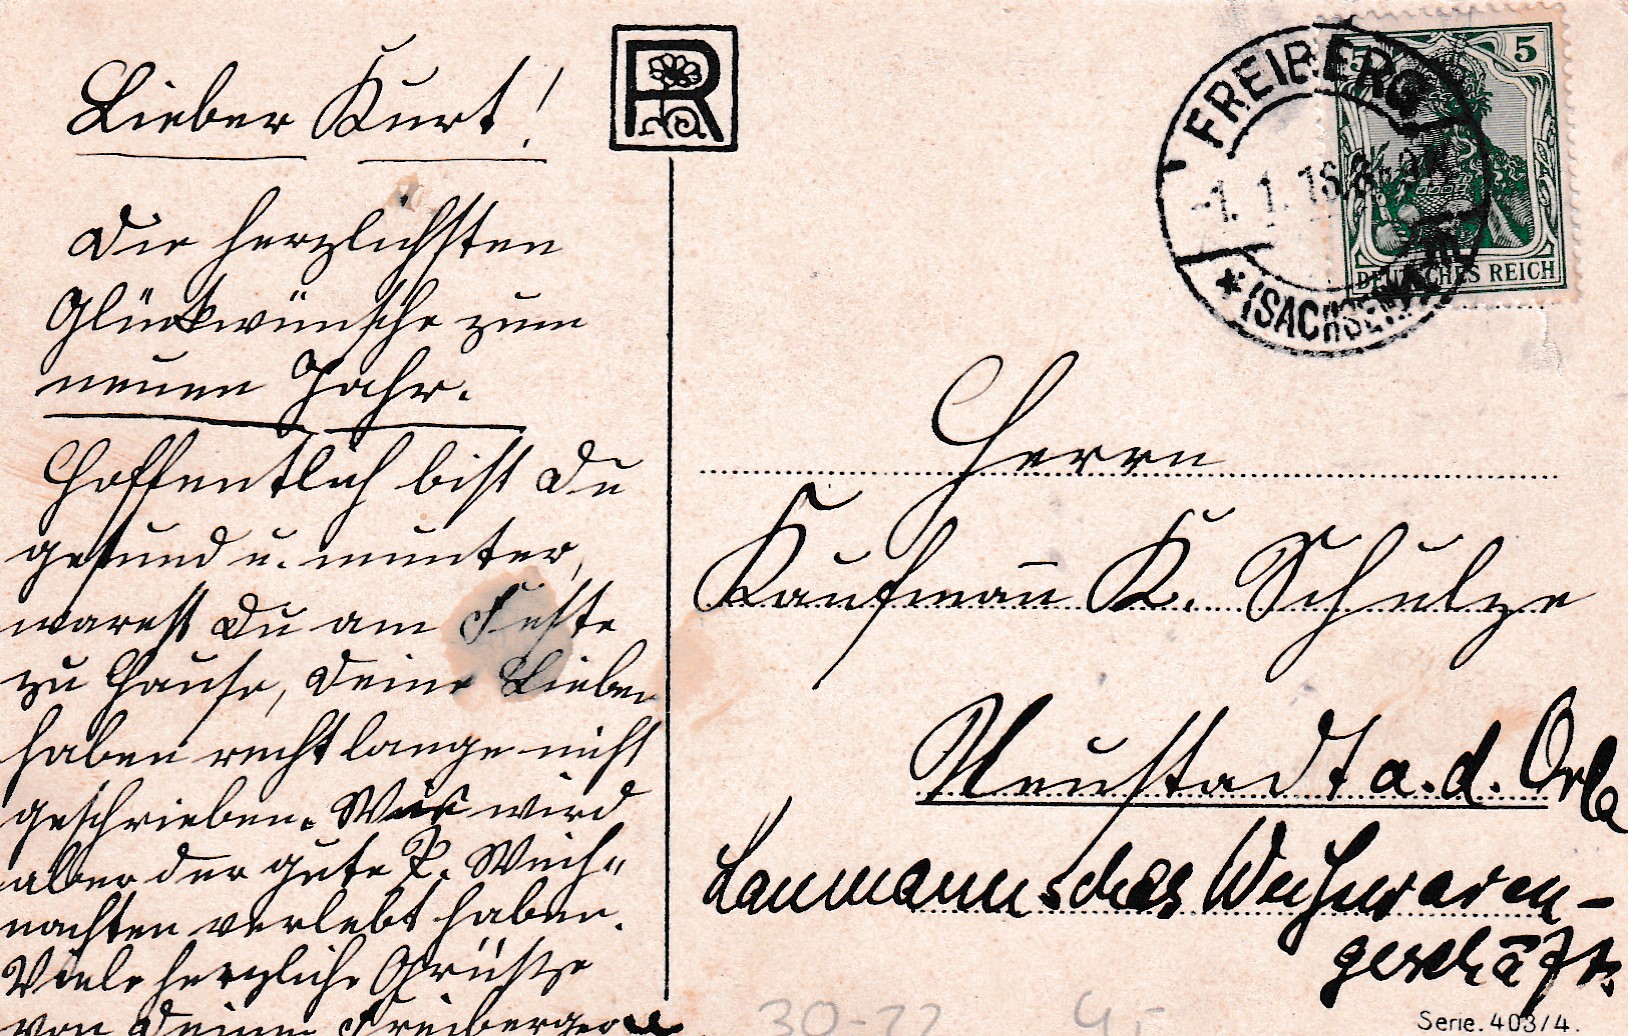 Lieber Kurt!
Die herzlichsten
Glückwünsche zum
neuen Jahr.
Hoffentlich bist Du
gesund u. munter,
warest Du am Feste
zu Hause, Deine Lieben
haben recht lange nicht
geschrieben. Wie wird
aber der gute P. Weih-
nachten verlebt haben.
Viele herzliche Grüße
von Deinen Freibergern
R
FREIBERG
1. 1. 16
*(SACHSEN)
5
DEUTSCHES REICH
Herrn
Kaufmann K. Schulze
Neustadt a. d. Orla
sches
geschäft
30-22
Serie. 403/4.